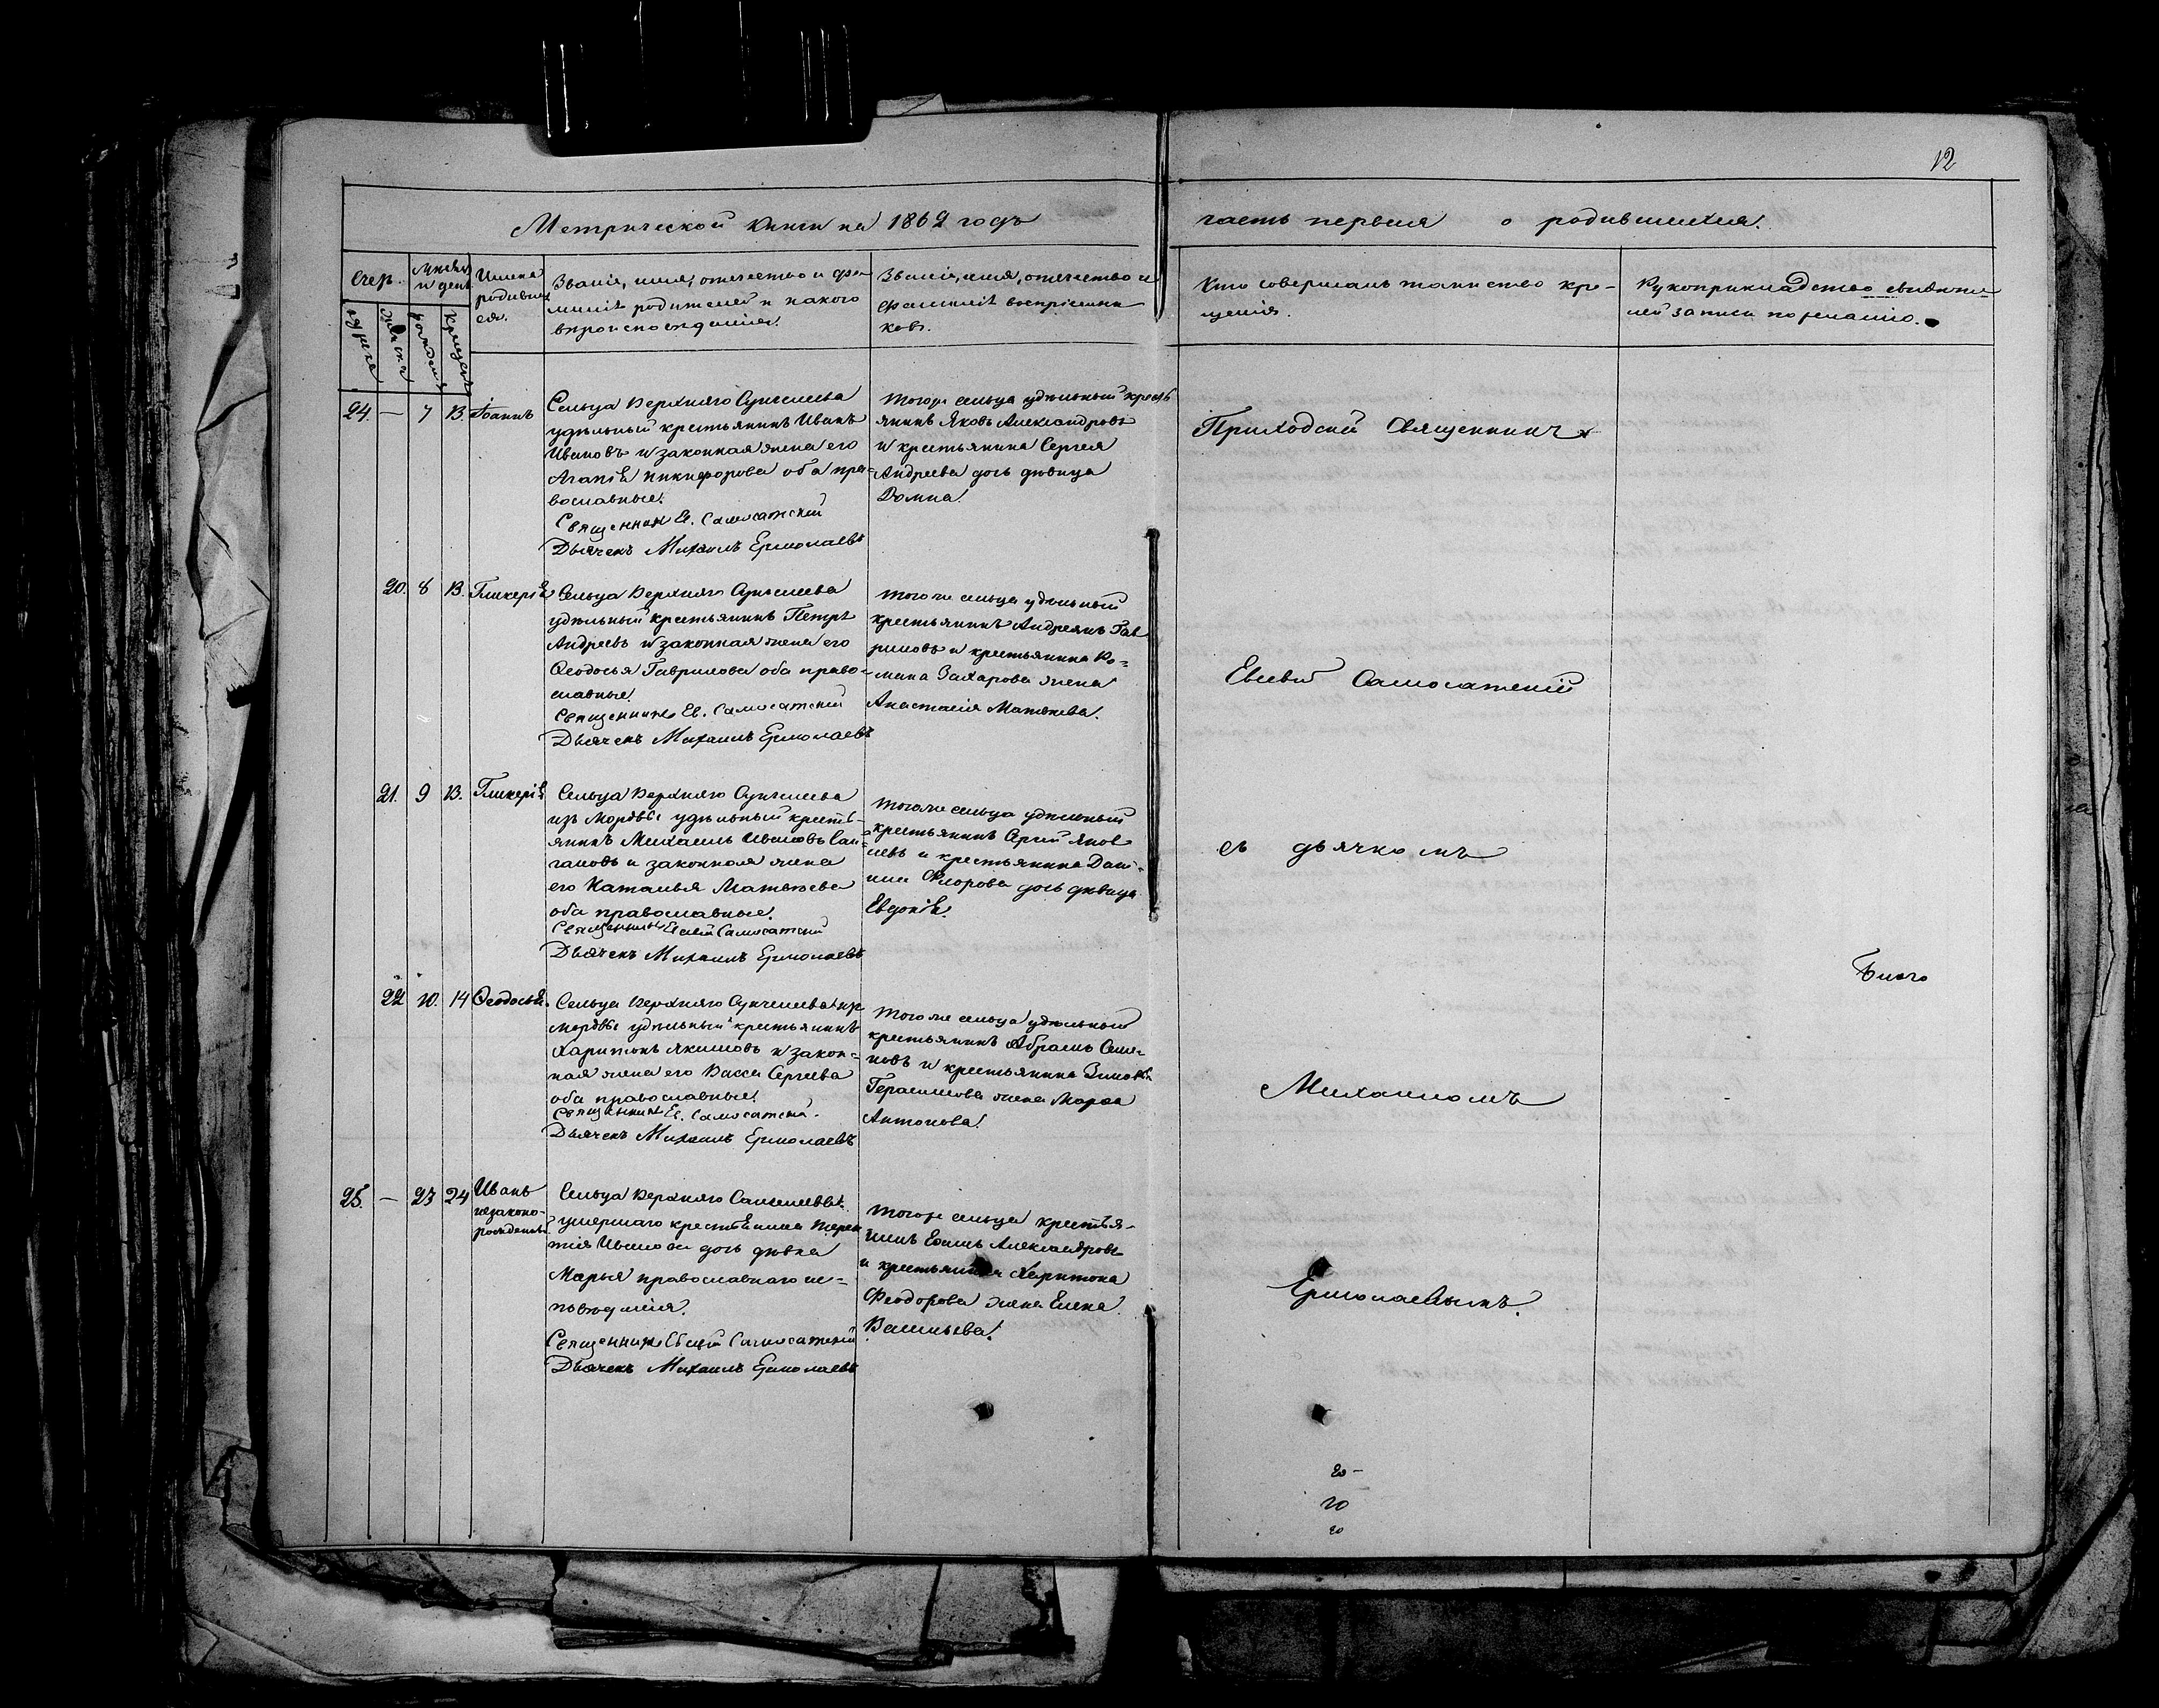 12
Метрической книги на 1862 годъ
часть первая о родившихся.
Счер.
Мѣсяцъ и день
Имена
родивших
ся.
Званіе, имя, отчество и фа
милія родителей и какого
вѣроисповѣданія.
Званіе, имя, отчество и
фамилія воспріемни
ковъ.
Кто совершалъ таинство кре-
щенія.
Рукоприкладство свидѣте
лей записи по желанію.
24. — 7 13. Іоаннъ
Сельца Верхняго
удѣльный крестьянинъ Иванъ
Ивановъ и законная жена его
Агапія Никифорова оба пра-
вославные.
Священникъ Ев. Самосатскій
Дьячекъ Михаилъ Ермолаевъ
Тогоже сельца удѣльный кресть
янинъ Яковъ Александровъ
и крестьянина Сергея
Андреева дочь дѣвица
Домна.
20. 8 13. Гликерія
Сельца Верхняго
удѣльный крестьянинъ Петръ
Андреевъ и законная жена его
Ѳеодосья Гаврилова оба право-
славные.
Священникъ Ев. Самосатскій
Дьячекъ Михаилъ Ермолаевъ
Тогоже сельца удѣльный
крестьянинъ Андреянъ Гав
риловъ и крестьянина Ро-
мана Захарова жена
Анастасія Матвѣева.
21. 9 13. Гликерія
Сельца Верхняго
изъ Мордвы удѣльный кресть-
янинъ Михаилъ Ивановъ
и законная жена
его Наталья Матвѣева
оба православные.
Священникъ Евсевій Самосатскій
Дьячекъ Михаилъ Ермолаевъ
Тогоже сельца удѣльный
крестьянинъ Сергій Яков
левъ и крестьянина Дани-
ила Флорова дочь дѣвица
Евдокія.
22 10. 14 Ѳеодосья.
Сельца Верхняго изъ
Мордвы удѣльный крестьянинъ
Харитонъ Якимовъ и закон-
ная жена его Васса Сергеева
оба православные.
Священникъ Ев. Самосатскій.
Дьячекъ Михаилъ Ермолаевъ
Тогоже сельца удѣльный
крестьянинъ Абрамъ Семе-
новъ и крестьянина Зиновія
Герасимова жена Марѳа
Антонова.
25. — 23 24 Иванъ
незаконо-
рожденный
Сельца Верхняго
умершаго крестьянина Терен
тія Иванова дочь дѣвка
Марья православнаго ис-
повѣданія.
Священникъ Евсевій Самосатскій
Дьячекъ Михаилъ Ермолаевъ
Тогоже сельца крестья-
нинъ Ефимъ Александровъ
и крестьянина Харитона
Феодорова жена Елена
Васильева.
Приходскій Священникъ
Евсевій Самосатскій
съ дьячкомъ
Михаиломъ
Ермолаевымъ.
20 -
20
20